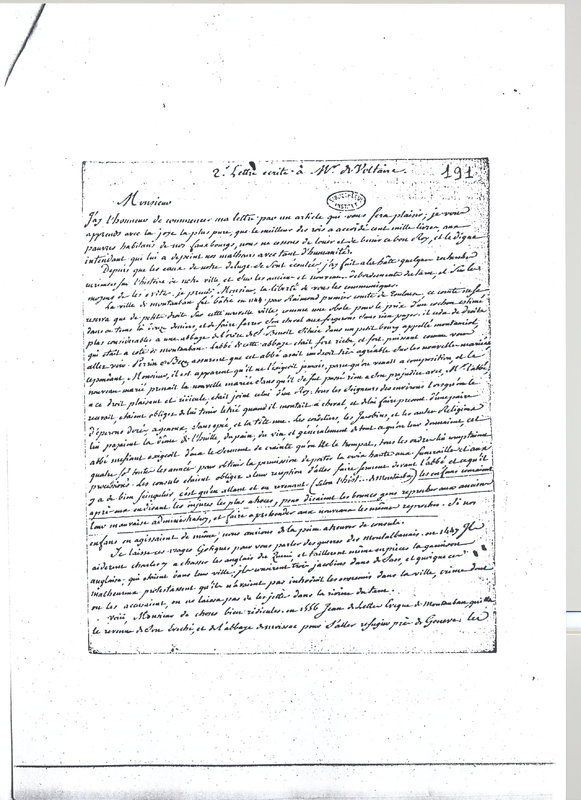 2.e Lettre ecrite à Mr. de Voltaire.
191
Monsieur
J'ay l'honneur de commencer ma lettre par un article qui vous fera plaisir; je vous
apprends avec la joye la plus pure, que le meilleur des rois a accordé cent mille livres aux
pauvres habitans de nos fauxbourgs, nous ne cessons de louer et de benir ce bon Roy, et le digne
intendant qui lui a depeint nos malheurs avec tant d'humanité.
Depuis que les eaux de notre deluge se sont écoulées j'ay fait à la hâte quelques recherches
curieuses sur l'histoire de notre ville et sur les anciens et nouveaux debordements du tarn, et sur les
moyens de les eviter. je prends, Monsieur, la liberté de vous les communiquer.
La ville de montauban fut bâtie en 1144. par Raimond premier comte de Toulouse. ce comte ne se
reserva que de petits droits sur cette nouvelle ville, comme une obole pour le prix d'un cochon estimé
dans ce tems là douze deniers, et de faire ferrer son cheval aux forgerons sans rien payer. il ceda des droits
plus considerables a une abbaye de l'ordre de St. Benoit située dans un petit bourg appellé montauriol,
qui était a coté de montauban. l'abbé de cette abbaye était fort riche, et fort puissant comme vous
allez voir. Perrin et Besc assurent que cet abbé avait un droit très agreable sur les nouvelles mariées
cependant, Monsieur, il est apparent qu'il ne l'exigeoit jamais, parce qu'on venait a composition et le
nouveau marié prenait la nouvelle mariée sans qu'il se fut passé rien de bon prejudice avec Mr. l'abbé.
a ce droit plaisant et ridicule, était joint celui d'un Roy; tous les seigneurs des environs lorsqu'on le
recevait étaient obligés de lui tenir l'etrié quand il montait à cheval, et de lui faire present d'une paire
d'éperons dorés, a genoux, sans épée, et la tête nue. les cordeliers, les Jacobins, et les autres Religieux
lui payaient la dime de l'huille, du pain, du vin, et generalement de tout ce qu'on leur donnait, cet
abbé mefiant exigeait d'eux le serment de crainte qu'on ne le trompat, tous les ordres lui comptaient
quatre sols toutes les années pour obtenir la permission de porter la croix haute aux funerailles et aux
processions. les consuls étaient obligés a leur reception d'aller faire serment devant l'abbé et ce qu'il
y a de bien singulier c'est qu'en allant et en revenant (selon l'hist. de Montauban) les enfans couraient
après eux en disant les injures les plus atroces, pour dire aux bonnes gens reprocher aux anciens
leur mauvaise administration, et faire apprehender aux nouveaux les mêmes reproches. Si nos
enfans en agissaient de même, nous aurions de la peine a trouver de consuls.
Je laisse ces usages Gotiques pour vous parler des guerres des Montalbanais. en 1447 Ils
aiderent charles 7 a chasser les anglais du Querci et taillerent même en pieces la garnison
anglaise qui étaient dans leur ville, ils renfermerent trois jacobins dans de sacs, et quoique ces
malheureux protestassent qu'ils n'avaient pas introduit les ennemis dans la ville, crime dont
on les accusait, on ne laissa pas de les jetter dans la riviere du tarn.
voici Monsieur de choses bien ridicules. en 1556 Jean de Lettes Evêque de montauban, quitte
le revenu de son Evêché, et de l'abbaye de moissac pour s'aller refugier près de Geneve. les